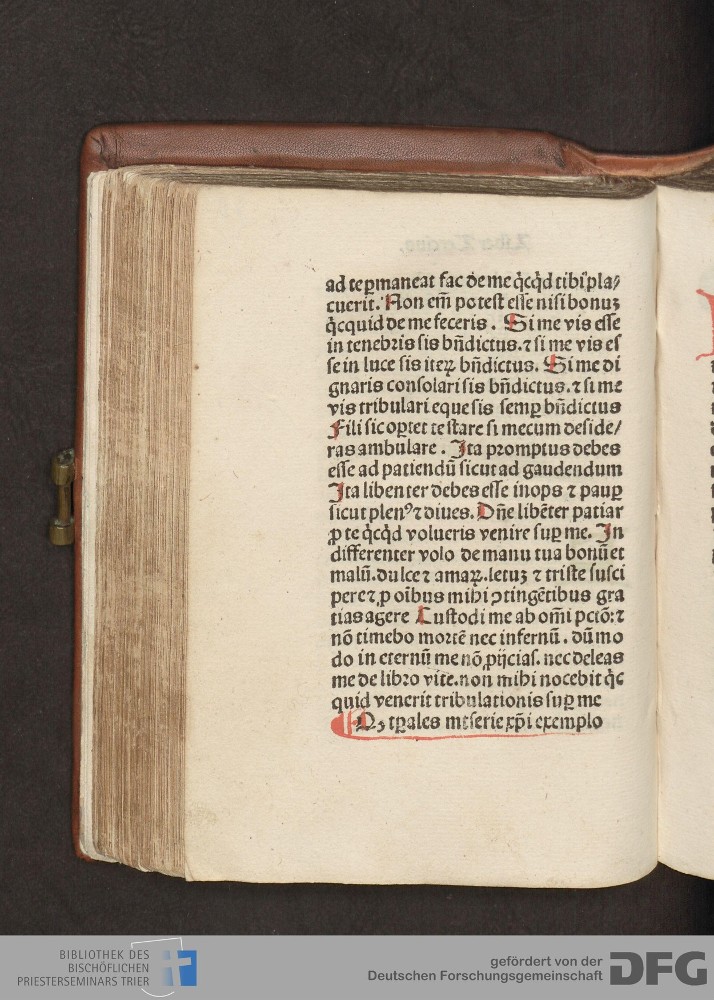 ad te ꝑmaneat fac de me q̇cq̇d tibi pla⸗
cuerit. Non em̄ potest esse nisi bonuꝫ
q̇cquid de me feceris . Si me vis esse
in tenebris sis bn̄dictus. ⁊ si me vis es
se in luce sis iteꝝ bn̄dictus. Si me di
gnaris consolari sis bn̄dictus. ⁊ si me
vis tribulari eque sis semꝑ bn̄dictus
Fili sic oꝑtet te stare si mecum deside/
ras ambulare . Ita promptus debes
esse ad patiendū sicut ad gaudendum
Ita libenter debes esse inops ⁊ pauꝑ
sicut plenꝰ ⁊ diues. Dn̄e libēter patiar
ꝓ te q̇cq̇d volueris venire suꝑ me. In
differenter volo de manu tua bonū et
malū. dulce ⁊ amaꝝ. letuꝫ ⁊ triste susci
pere ⁊ ꝓ oībus mihi ꝯtingētibus gra
tias agere Custodi me ab om̄i pctō: ⁊
nō timebo mortē nec infernū . dū mo
do in eternū me nō ꝓijcias. nec deleas
me de libro vite. non mihi nocebit q̇c
quid venerit tribulationis suꝑ me
¶ Qꝫ tꝑales miserie xp̄i exemplo
BIBLIOTHEK DES
BISCHÖFLICHEN
PRIESTERSEMINARS TRIER
gefördert von der
Deutschen Forschungsgemeinschaft
DFG